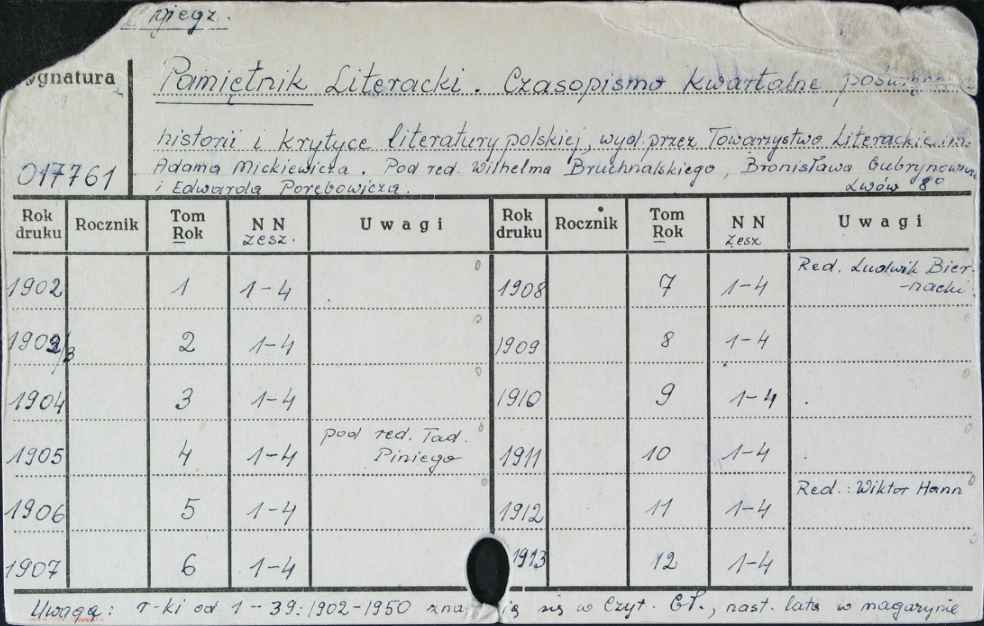 niegz.
ygnatura
Pamiętnik Literacki. Czasopismo kwartalne
historii i krytyce literatury polskiej, wyd. przez Towarzystwo Literackie
017761
Adama Mickiewicza. Pod red. Wilhelma Bruchnalskiego, Bronisława Gubrynowicza
i Edwarda Porębowicza. Lwów 8°
Rok druku Rocznik Tom Rok NN zesz. Uwagi Rok druku Rocznik Tom Rok NN zesz Uwagi
1902 1 1-4 1908 7 1-4 Red. Ludwik Bier-
-nacki.
1902/3 2 1-4 1909 8 1-4
1904 3 1-4 1910 9 1-4
1905 4 1-4 pod red. Tad. Piniego 1911 10 1-4
1906 5 1-4 1912 11 1-4 Red.: Wiktor Hann
1907 6 1-4 1913 12 1-4
Uwaga: r-ki od 1-39:1902-1950 się w Czyt. Gł., nast. lata w magazynie